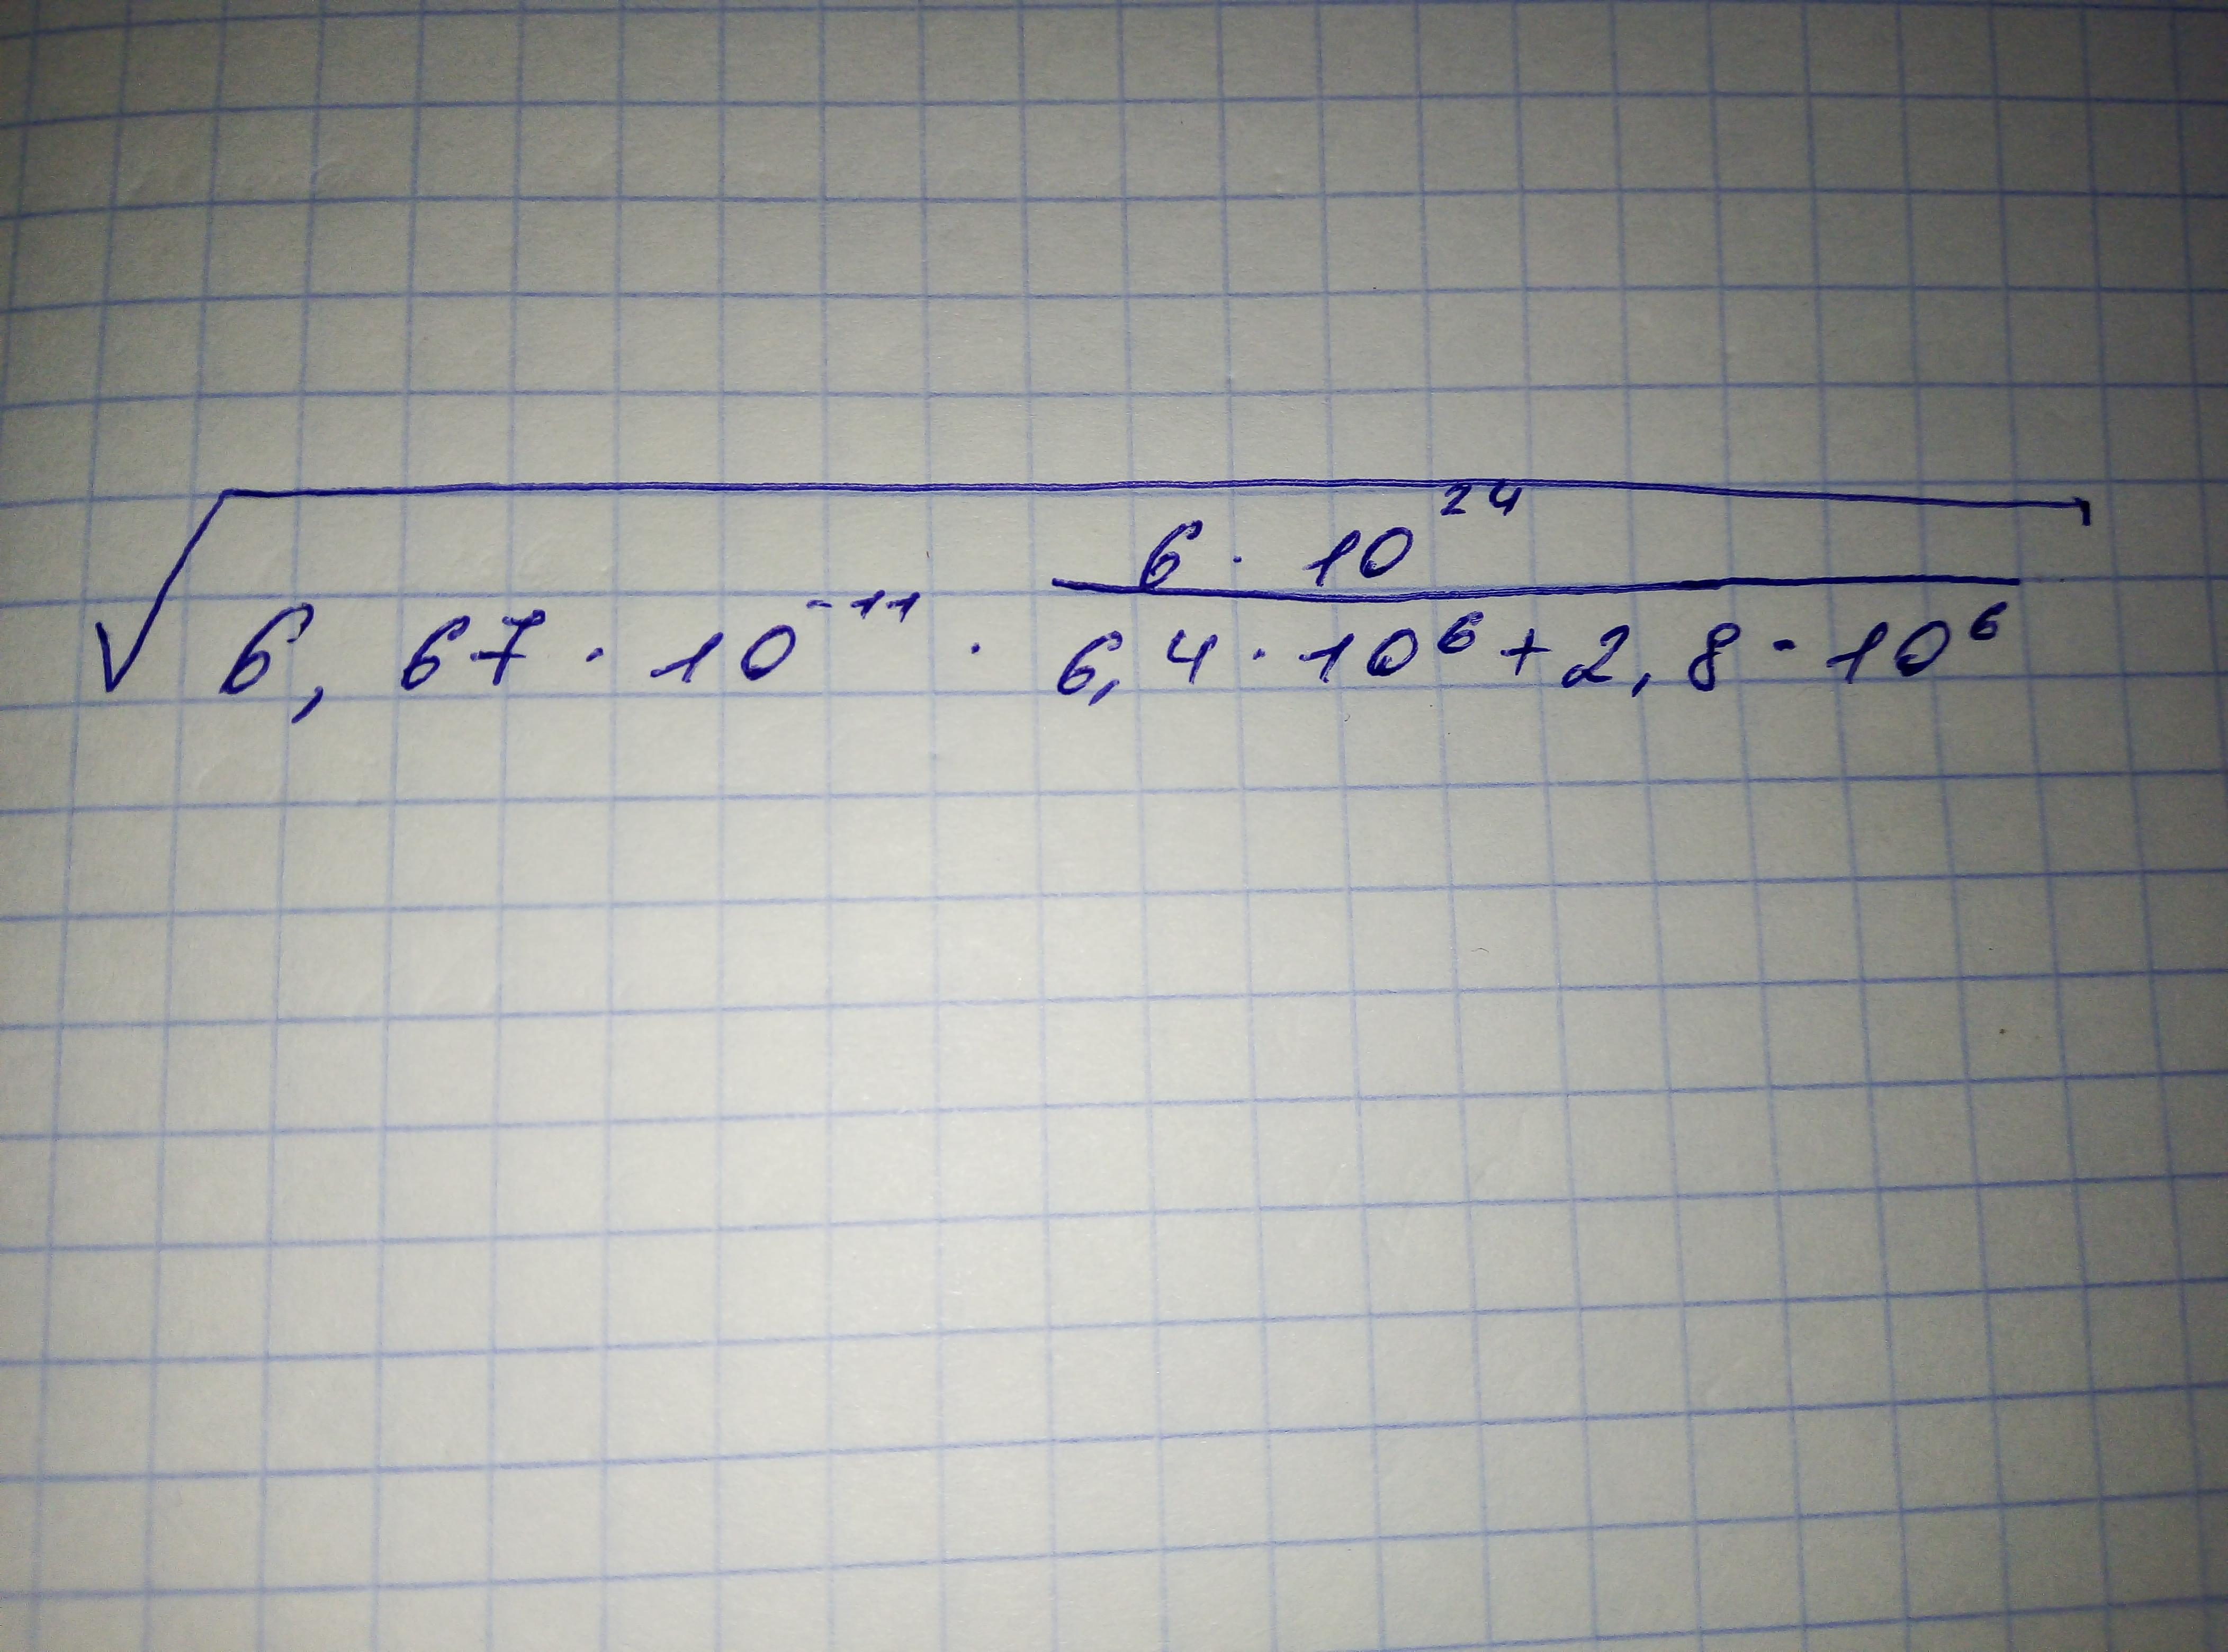 √(6,67 · 10⁻¹¹ · (6 · 10²⁴)/(6,4 · 10⁶ + 2,8 · 10⁶))